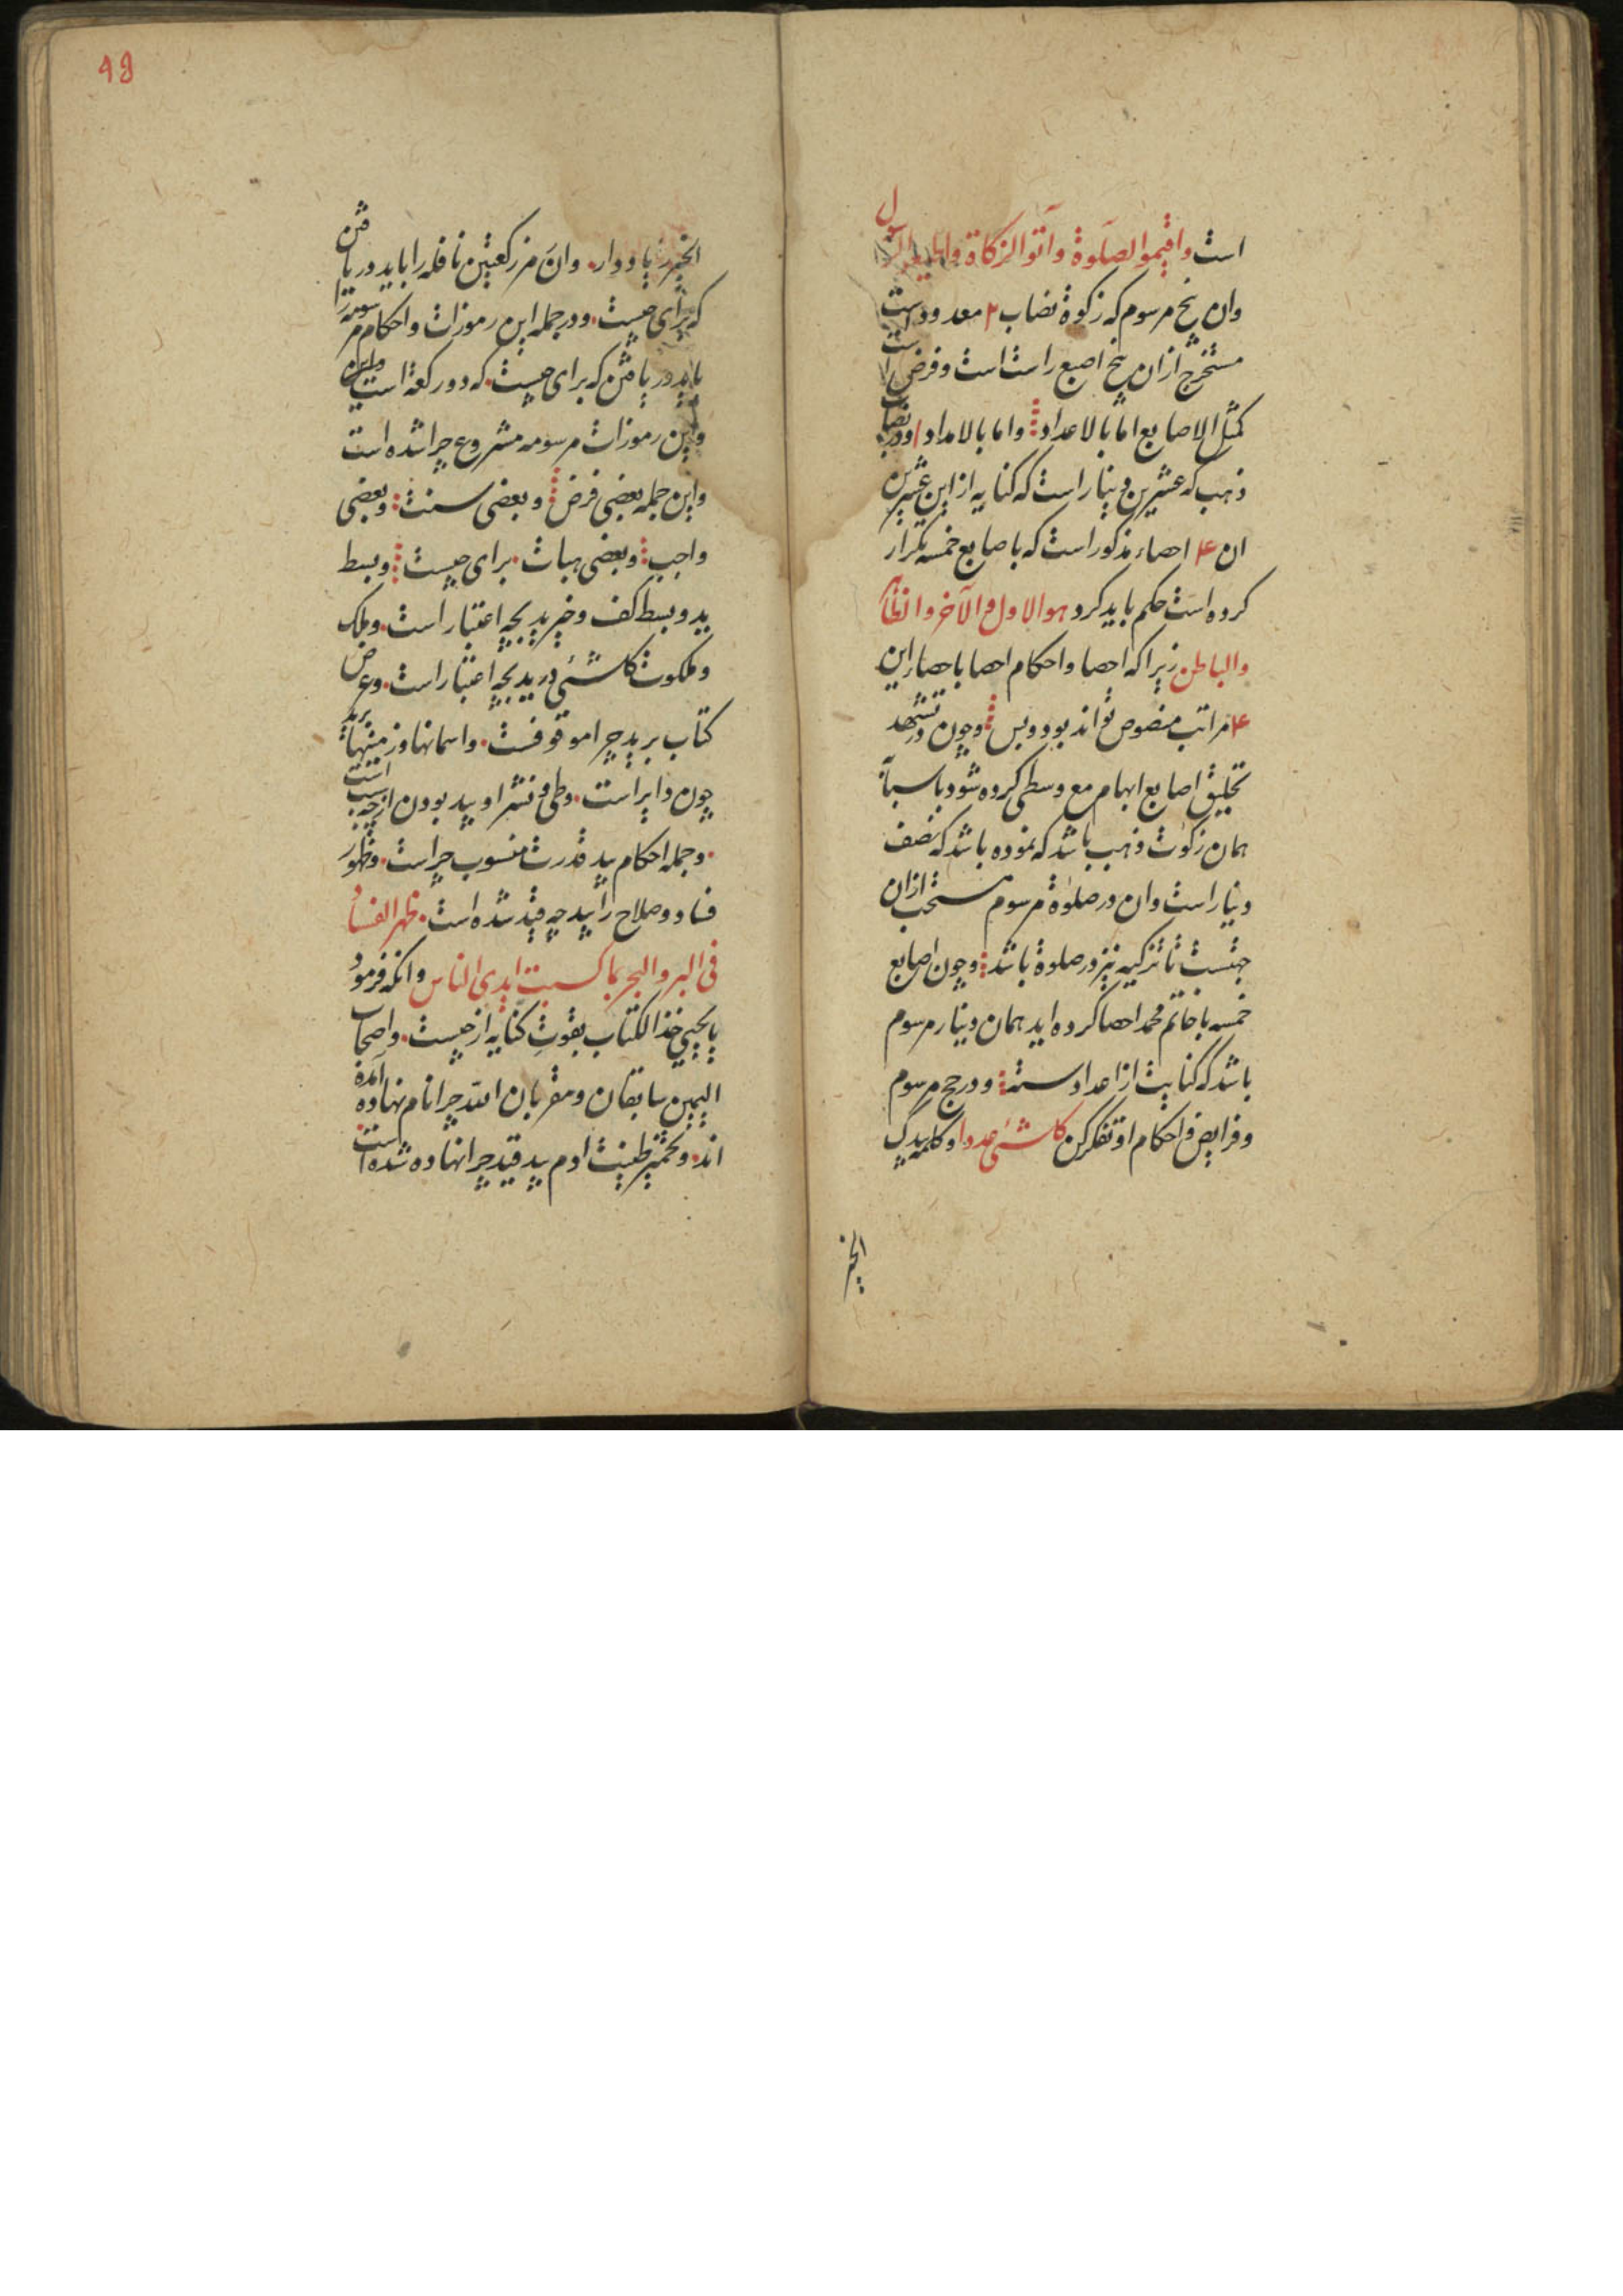 است واقیموا الصلوة وآتوا الزکاة واطیعوا الرسول
وان پنج مرسوم که زکوة نصاب ۲ معدود است
مستخرج ازان پنج اصبع راست است وفرض است
کمثل الاصابع اما بالاعداد واما بالامداد ودر نصاب
ذهب که عشرین دینار است که کنایه از این عشرین
ان ۴ احصاء مذکور است که باصابع خمسه تکرار
کرده است حکم باید کرد هوالاول والآخر والظاهر
والباطن زیرا که احصا واحکام احصا باحصار این
۴ مراتب منصوص تواند بود وبس وچون در تشهد
تحلیق اصابع ابهام مع وسطی کرده شود با سبابه
همان زکوت ذهب باشد که نموده باشد که نصف
دینار است وان در صلوة مرسوم مستحب ازان
جهتست تا تزکیه نیز در صلوة باشد وچون اصابع
خمسه با خاتم محمد احصا کرده اید همان دینار مرسوم
باشد که کنایت از اعداد سته ودر حج مرسوم
وفرایض واحکام او تفکر کن کل شیٔ عددا وکلمه بیدک
الخیر
48
الخیر زیاد دار وان مر رکعتین نافله را باید دریافتن
که برای چیست ودر جمله این رموزات واحکام مرسومه را
باید دریافتن که برای چیست که دو رکعة است واین
واین رموزات مرسومه مشروع چرا شده است
واین جمله بعضی فرض وبعضی سنت وبعضی
واجب وبعضی هیات برای چیست وبسط
ید وبسط کف وخیر ید بچه اعتبار است وملک
وملکوت کل شیٔ در ید بچه اعتبار است وعرض
کتاب بر ید چرا موقوفست واسمانها وزمینها بر ید
چون دایر است وطی ونشر او بید بودن از چه سبب است
وجمله احکام بید قدرت منسوب چراست وظهور
فساد وصلاح را بید چه قید شده است ظهر الفساد
فی البر والبحر بما کسبت ایدی الناس وانکه فرمود
یا یحیی خذ الکتاب بقوت کنایه از چیست واصحاب
الیمین سابقان ومقربان الله چرا نام نهاده آمده
اند وتخمیر طینت ادم بید قید چرا نهاده شده است